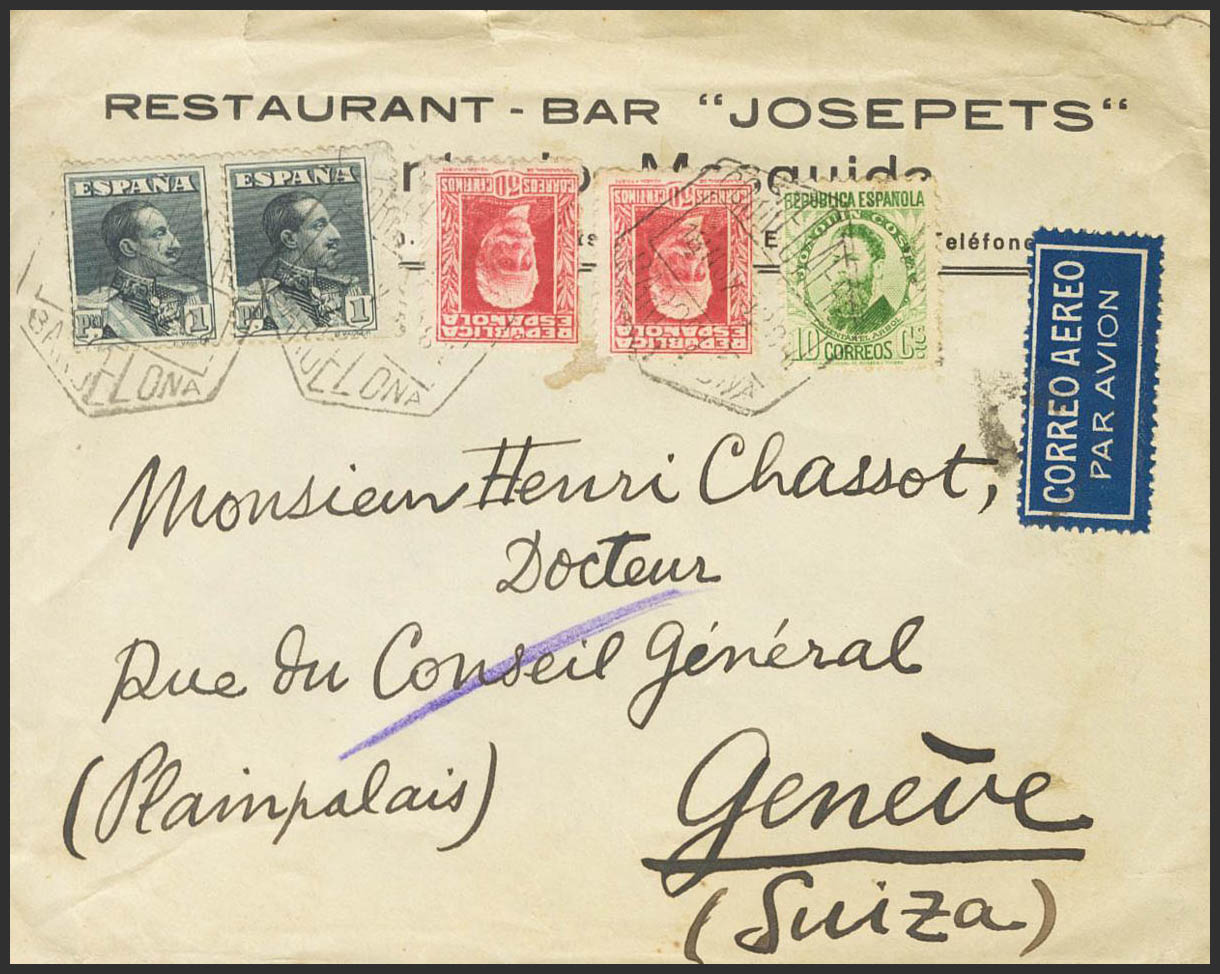 RESTAURANT - BAR “JOSEPETS“
Mosquida
Teléfono
ESPAÑA
1
Pta
ESPAÑA
1
Pta
CORREOS 50 CENTIMOS
REPÚBLICA
ESPAÑOLA
CORREOS 50 CENTIMOS
REPÚBLICA
ESPAÑOLA
REPÚBLICA ESPAÑOLA
JOAQUIN COSTA
10 CORREOS Cts
BARCELONA
BARCELONA
CORREO AEREO
PAR AVION
Monsieur Henri Chassot,
Docteur
Rue du Conseil Général
(Plainpalais)
Genève
(Suiza)